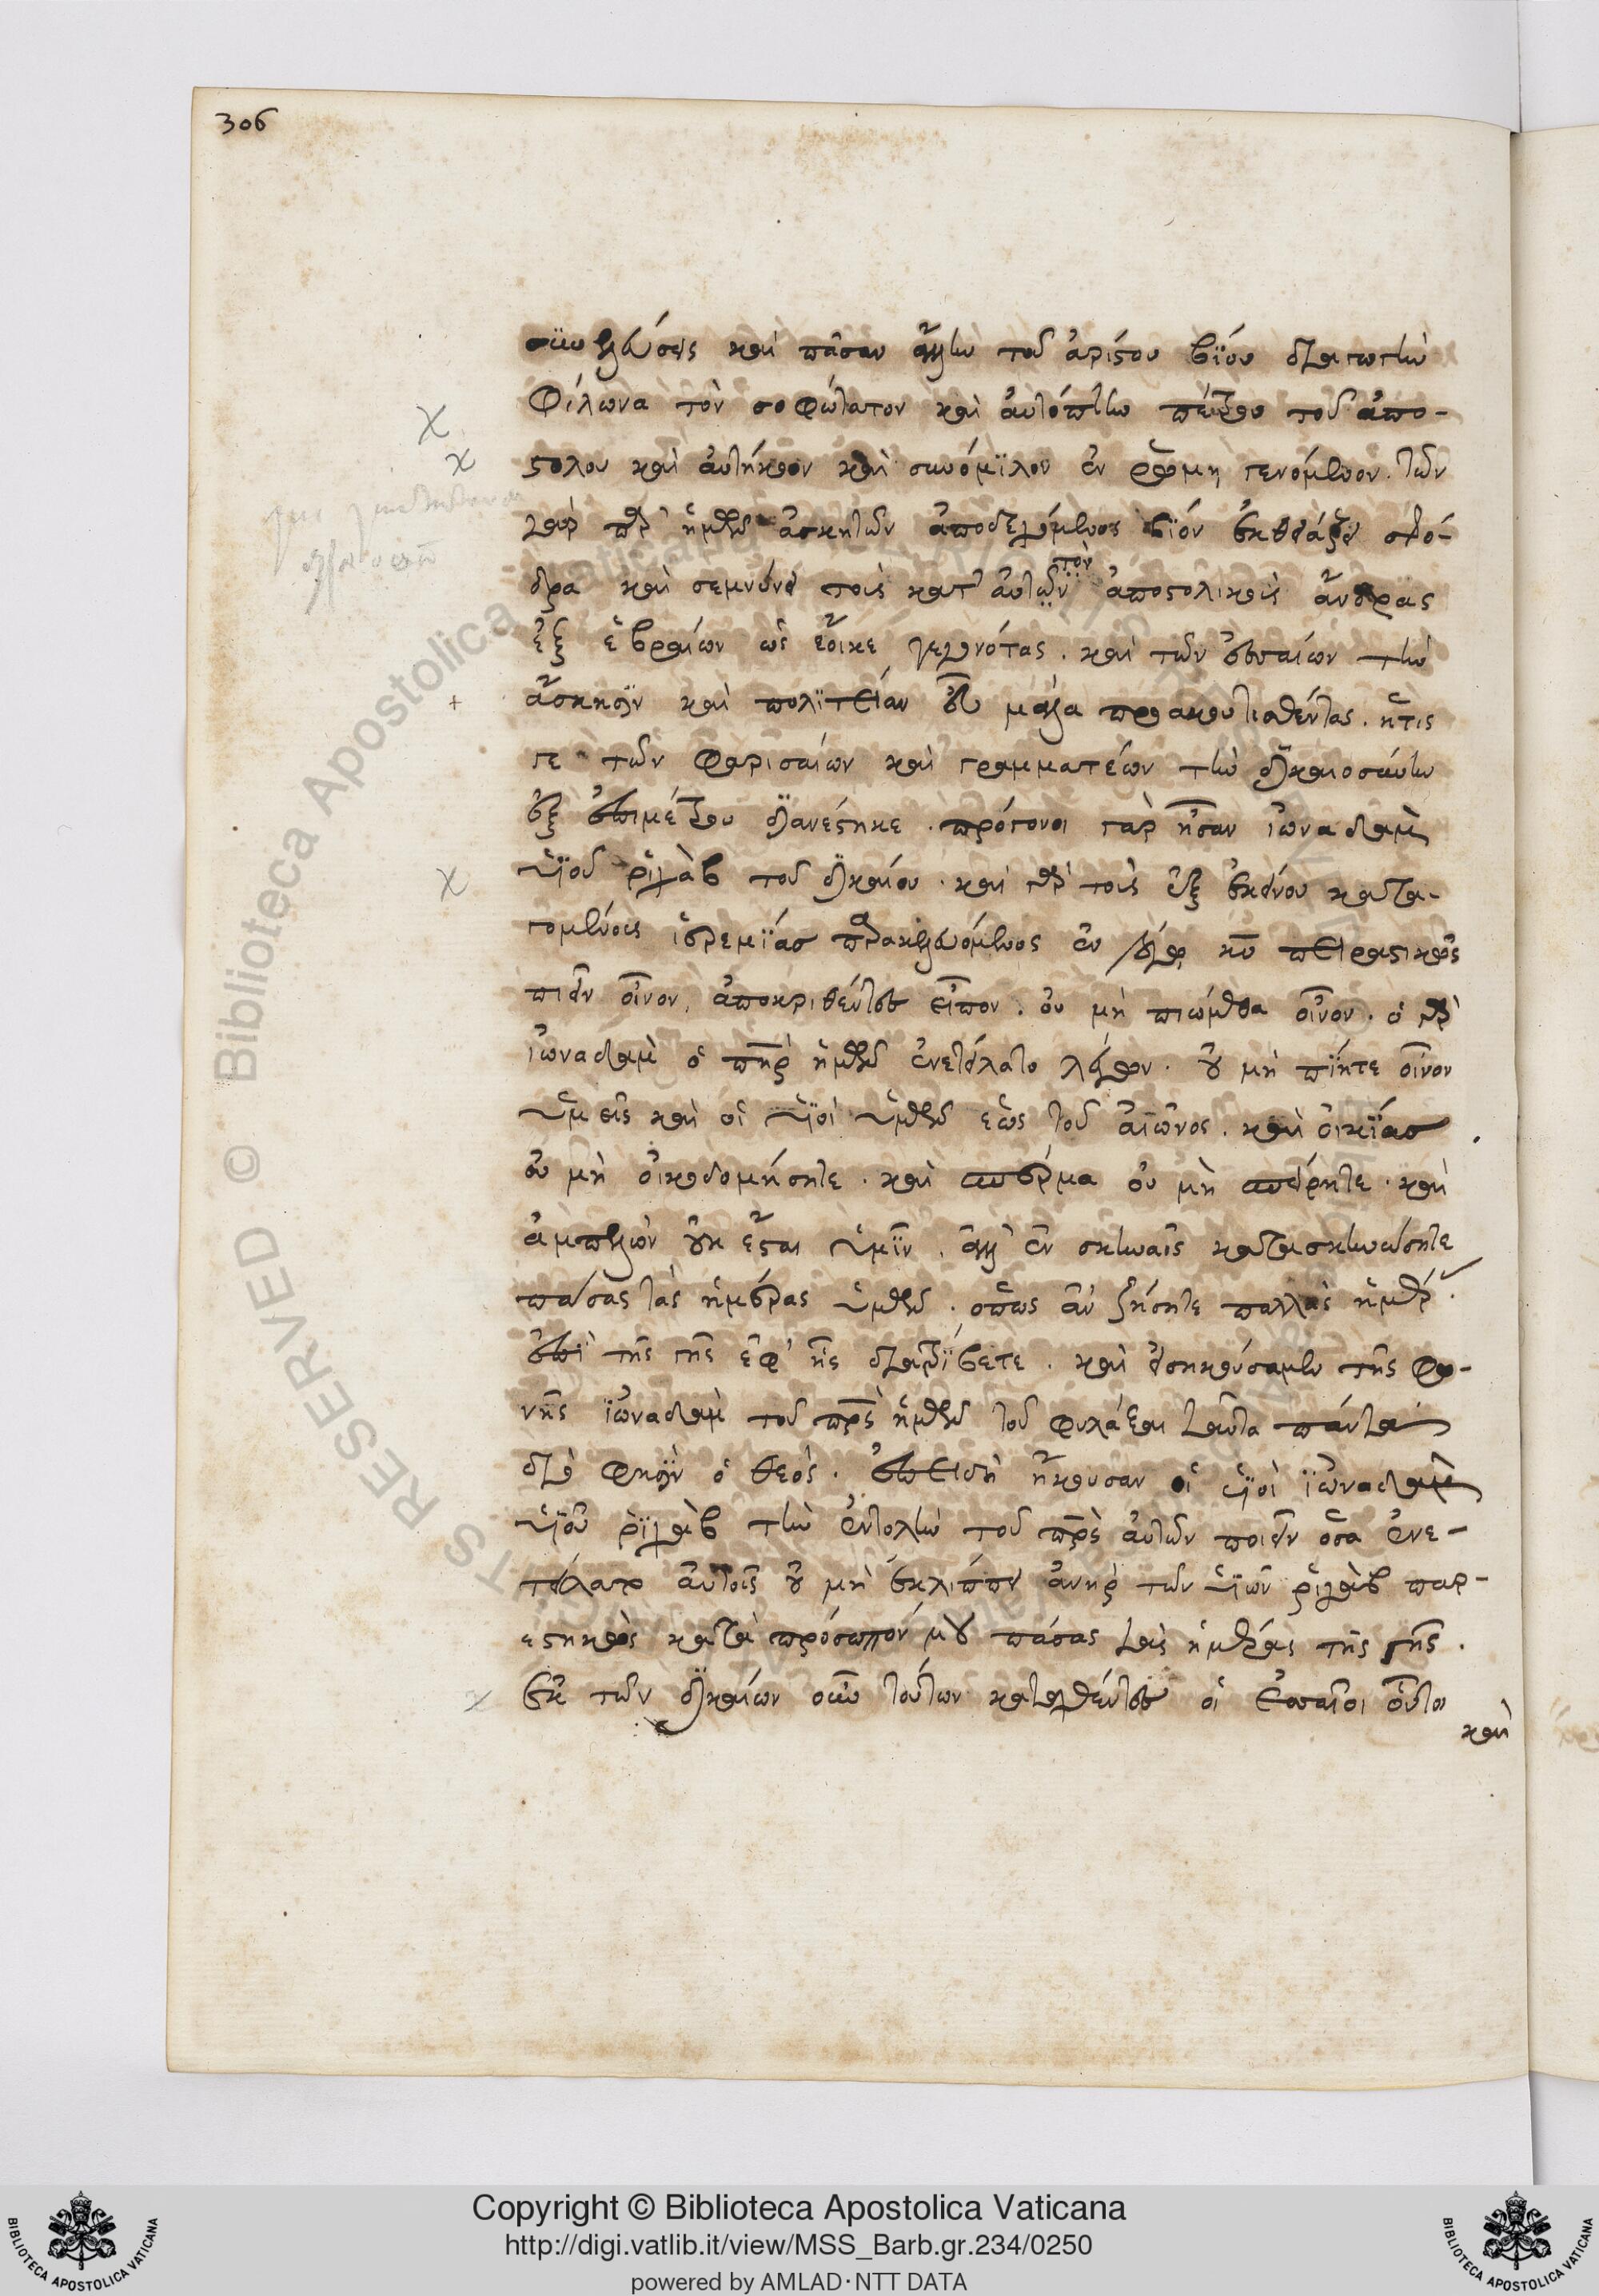 306
συγκλύσεις καὶ πᾶσαν ἄλλην τοῦ ἀρίστου βίου διαγωγὴν
Φίλωνα τὸν σοφώτατον καὶ αὐτόπτην πέτρου τοῦ ἀπο-
στόλου καὶ αὐτήκοον καὶ συνόμϊλον ἐν ῥώμη γενόμενον. τῶν
γὰρ παρ' ἡμῶν ἀσκητῶν ἀποδεχόμενος βϊον ἐκθειάζει σφό-
δρα καὶ σεμνύνει τοὺς κατ' αὐτῶν τὸν ἀποστολικοὺς ἄνδρας
ἐξ ἑβραίων ὡς ἔοικε γεγονότας. καὶ τῶν ἐσσαίων τὴν
ἄσκησιν καὶ πολϊτείαν εὖ μάλα προακουτισθέντας. ἥτις
γε τῶν φαρισαίων καὶ γραμματέων τὴν δικαιοσύνην
ἐξ ἐπιμέτρου διανέστηκε. πρόγονοι γὰρ ἦσαν ἰωναδαμὲ
υἱοῦ ῥιχὰβ τοῦ δικαίου. καὶ γὰρ τοὺς ἐξ ἐκείνου καταγο-
γομένους ἱερεμΐας παρακελευόμενος ἐν λόγω κυ πειραστικῶς
πιεῖν οἶνον, ἀποκριθέντες εἶπον. οὐ μὴ πιώμεθα οἶνον. ὁ γὰρ
ἰωναδαμὲ ὁ πηρ ἡμῶν ἐνετείλατο λέγων. οὐ μὴ πίητε οἶνον
ὑμεῖς καὶ οἱ υἱοὶ ὑμῶν ἕως τοῦ αἰῶνος. καὶ οἰκΐας
οὐ μὴ οἰκοδομήσητε. καὶ σπέρμα οὐ μὴ σπείρητε. καὶ
ἀμπελὼν οὐκ ἔσται ὑμῖν. ἀλλ' ἐν σκηναῖς κατασκηνώσητε
πάσας τὰς ἡμέρας ὑμῶν. ὅπως ἂν ζήσητε πολλὰς ἡμέρ
ἐπὶ τῆς γῆς ἐφ' ἧς διατρΐβετε. καὶ εἰσηκούσαμεν τῆς φω-
νῆς ἰωναδαμὲ τοῦ πρς ἡμῶν τοῦ φυλάξαι ταῦτα πάντα
διό φησὶν ὁ θεὸς. ἐπειδὴ ἤκουσαν οἱ υἱοὶ ἰωναδαμὲ
υἱοῦ ῥϊχὰβ τὴν ἐντολὴν τοῦ πρς αὐτῶν ποιεῖν ὅσα ἐνε-
τείλατο αὐτοῖς οὐ μὴ ἐκλίπῃ ἀνηρ τῶν υἱῶν ῥιχὰβ παρ-
εστηκὼς κατὰ πρόσωπόν μου πάσας τὰς ἡμέρας τῆς γῆς.
ἐκ τῶν δικαίων οὖν τούτων καταχθέντες οἱ ἐσσαῖοι οὗτοι
καὶ
Copyright © Biblioteca Apostolica Vaticana
http://digi.vatlib.it/view/MSS_Barb.gr.234/0250
powered by AMLAD·NTT DATA
BIBLIOTECA APOSTOLICA VATICANA
BIBLIOTECA APOSTOLICA VATICANA